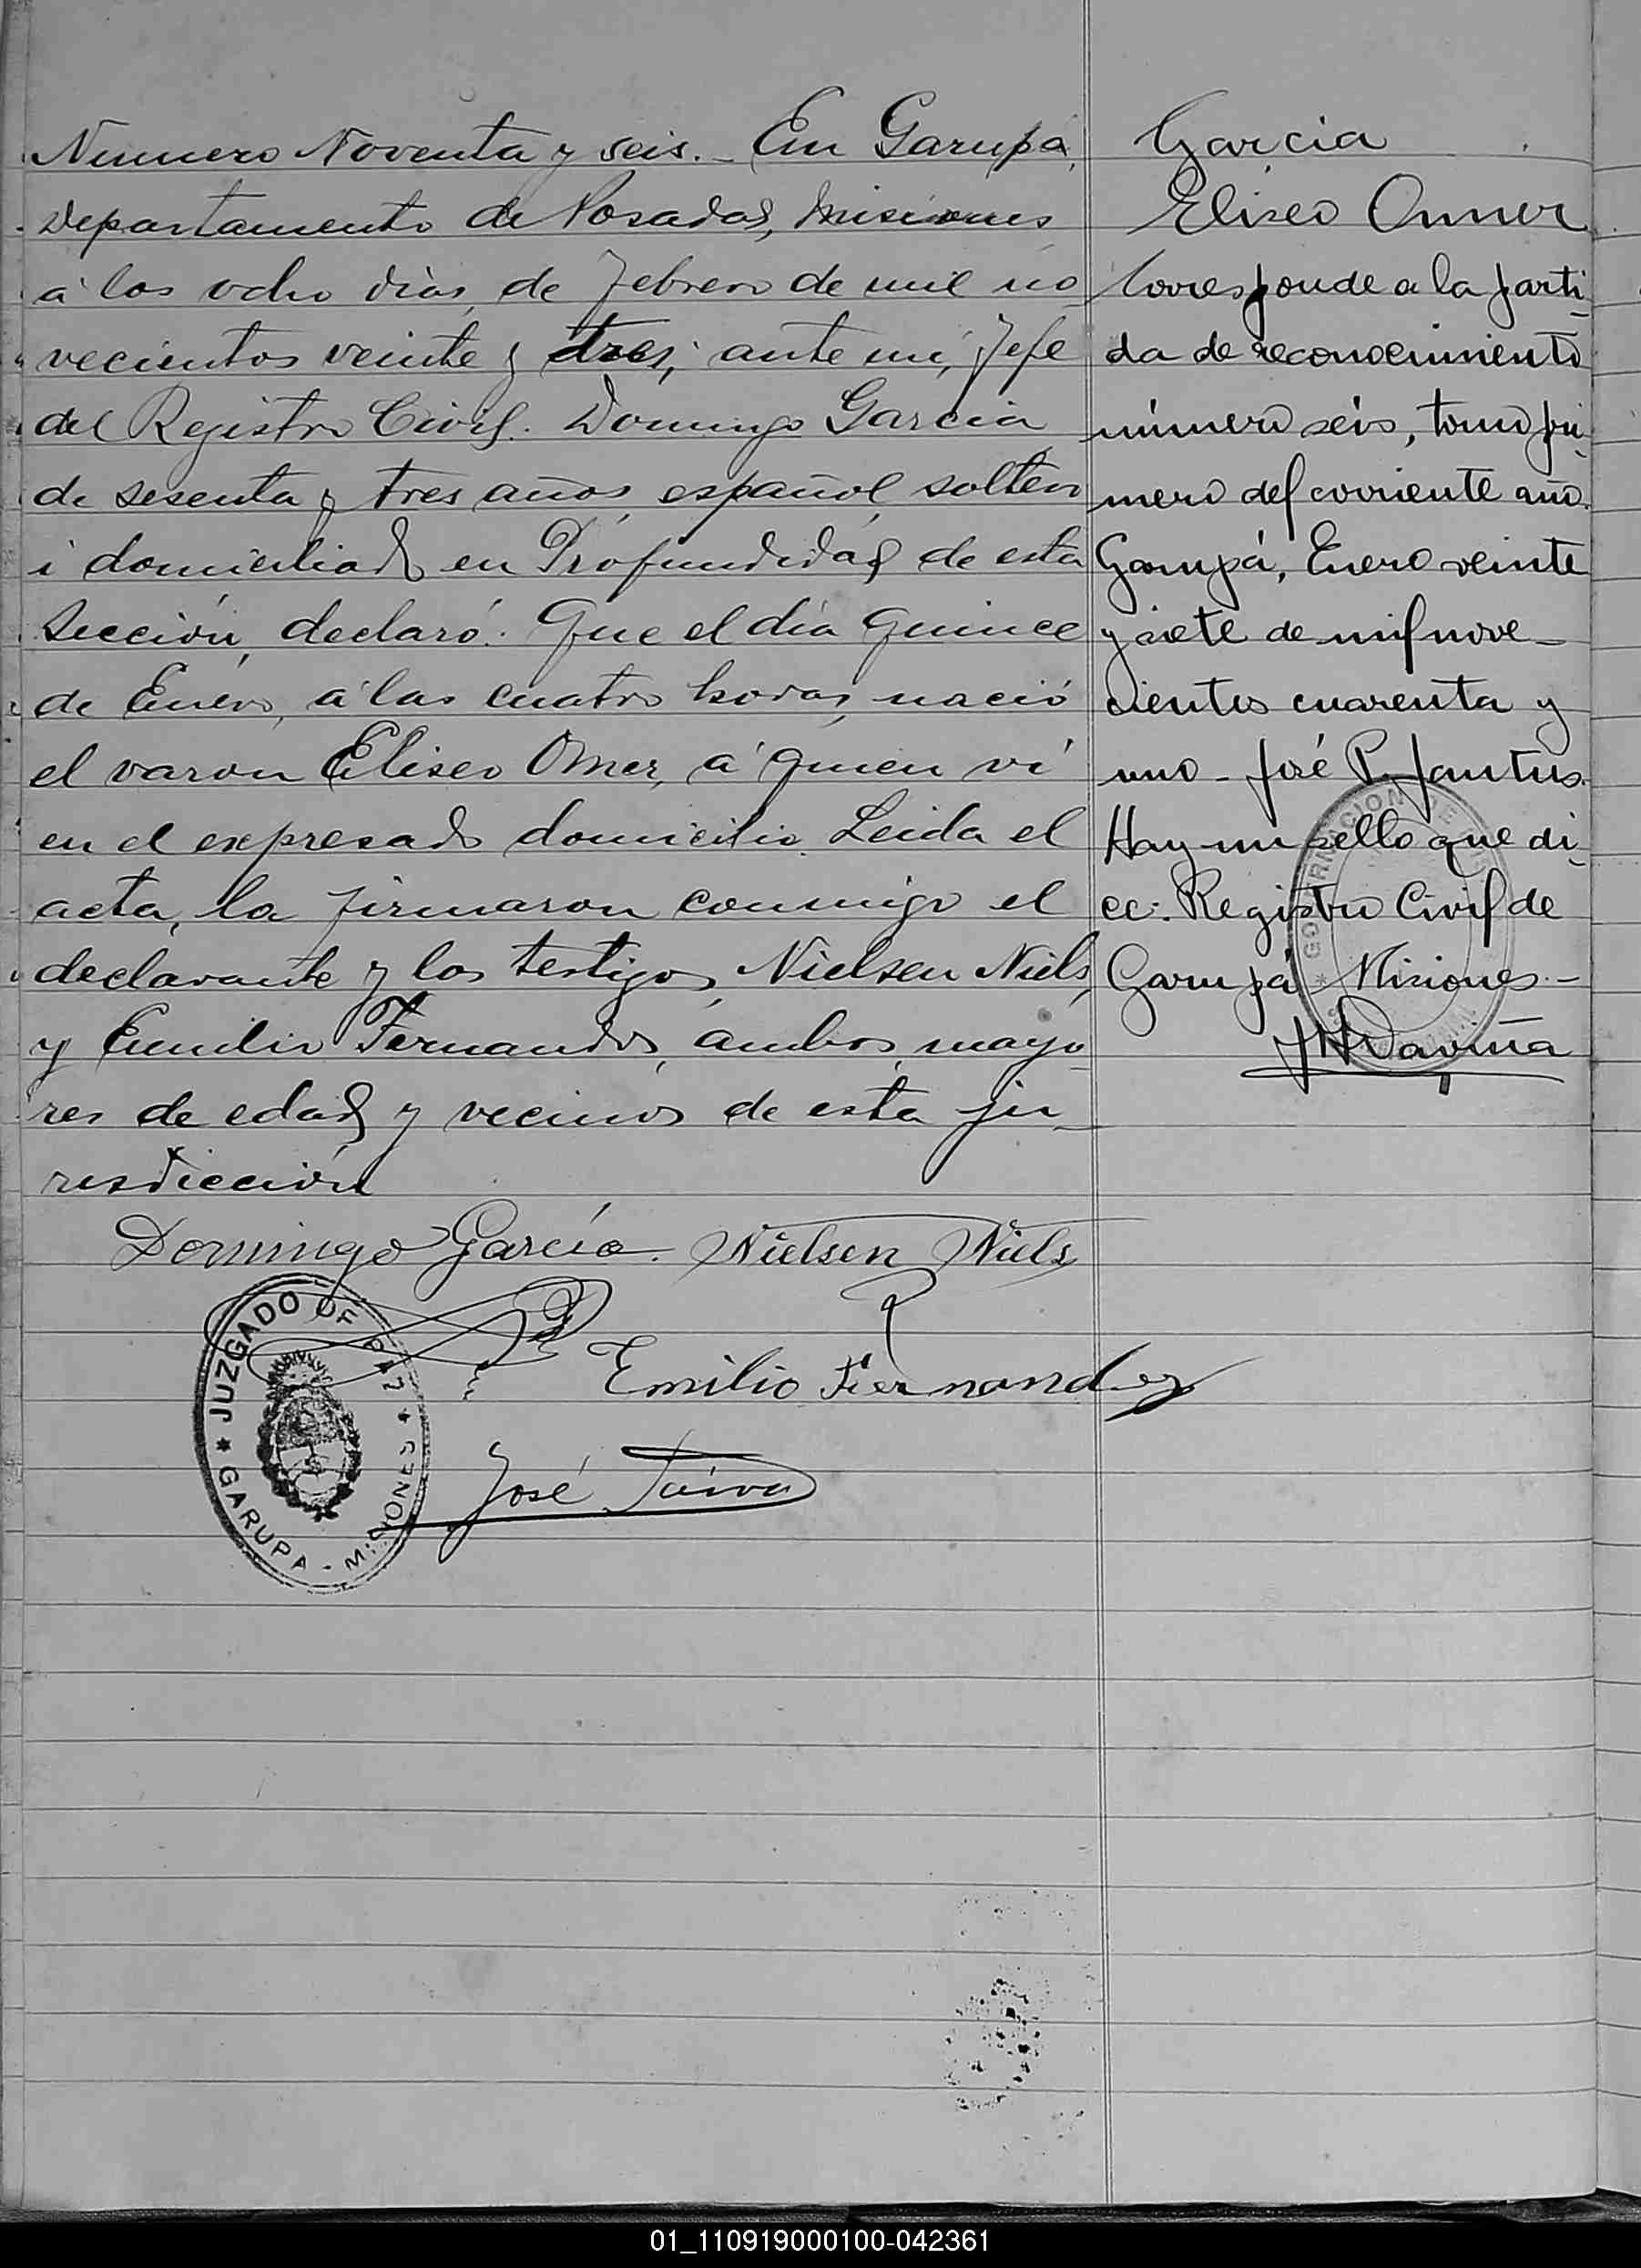 Numero Noventa y seis. - En Garupá,
Departamento de Posadas, Misiones
á los ocho dias, de Febrero de mil no
vecientos veinte y tres; ante mi, Jefe
del Registro Civil. Domingo Garcia
de sesenta y tres años, español, soltero
i domiciliado en Profundidad de esta
Sección, declaró: Que el día quince
de Enero, á las cuatro horas, nació
el varon Eliseo Omer, á quien vi
en el expresado domicilio. Leida el
acta, la firmaron conmigo el
declarante y los testigos, Nielsen Niels,
y Emilio Fernandes, ambos, mayo
res de edad y vecinos de esta ju
resdicción
Domingo García. Nielsen Niels
Emilio Fernandez
José
JUZGADO DE PAZ
* GARUPA - MISIONES *
Garcia
Eliseo Omer
Corresponde a la parti-
da de reconocimiento
número seis, tomo pri-
mero del corriente año.
Garupá, Enero veinte
y siete de mil nove-
cientos cuarenta y
uno - José P. Jantus.
Hay un sello que di-
ce: Registro Civil de
Garupá Misiones. -
GOBERNACION DE
01_110919000100-042361